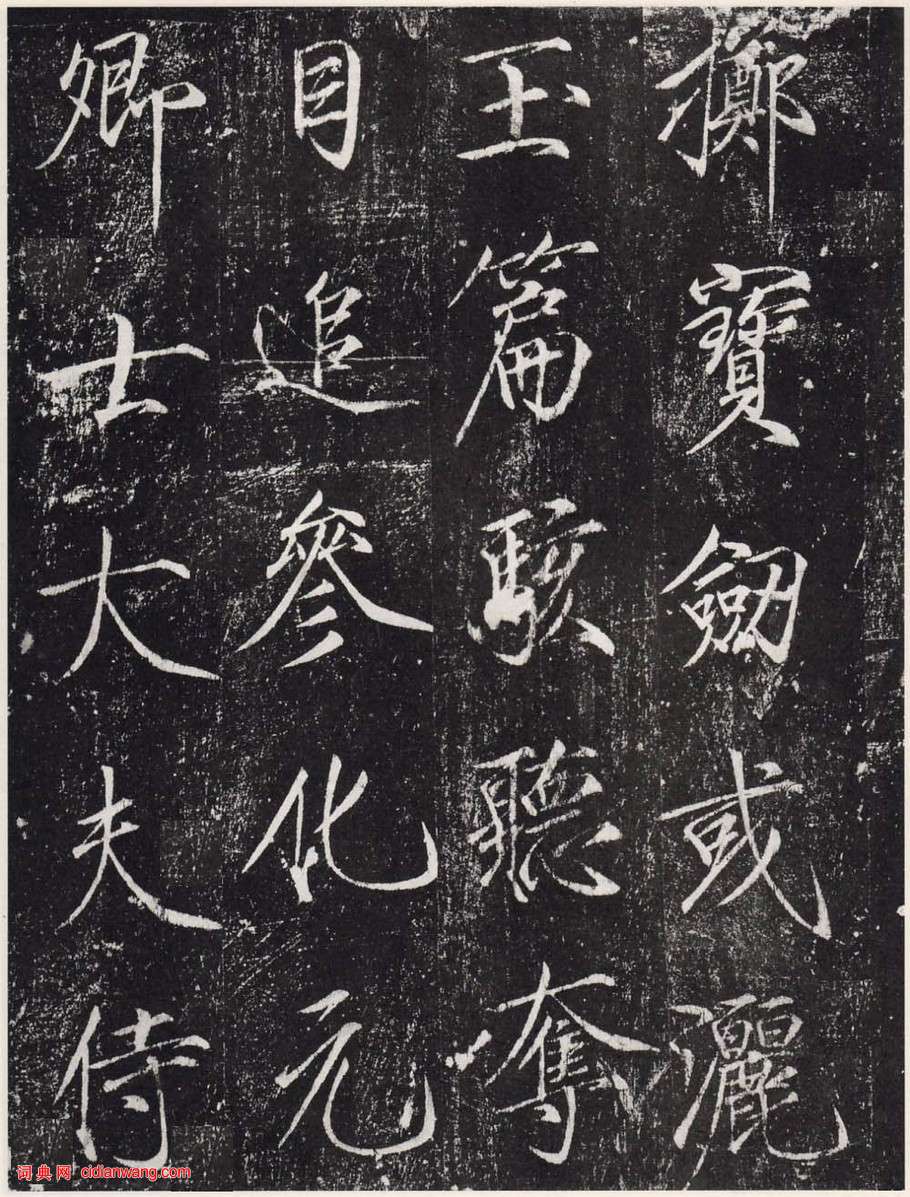 擲寶劒或灑
玉篇駭聽奪
目追參化元
卿士大夫侍
词典网 cidianwang.com